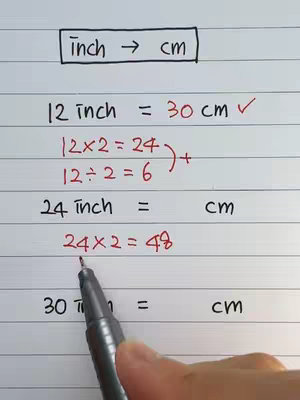 inch → cm
12 inch = 30 cm ✓
12 × 2 = 24
12 ÷ 2 = 6 ) +
24 inch = cm
24 × 2 = 48
30 in = cm